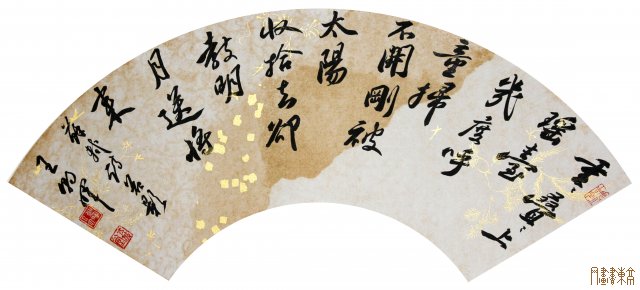 重〻疊〻上
瑤臺
幾度呼
童掃
不開剛被
太陽
收拾去卻
教明
月送將
來
蘇軾詩花影
王